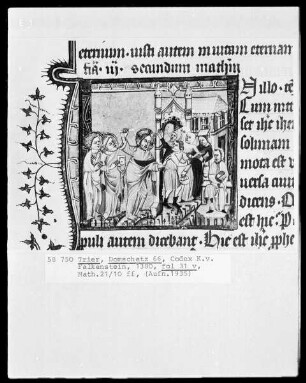 eternum. iusti autem in uitam eternam
fr̄a .iij. secundum mathm
In illo. tē
Cum
ser ihc
solimam
mota est u
uersa
dicens. Q
est hic. P
puli autem dicebant. Hic est ihc pphe
55 750 Trier, Domschatz 66, Codex K.v.
Falkenstein, 1380, fol 31 v,
Math.21/10 ff, (Aufn.1935)